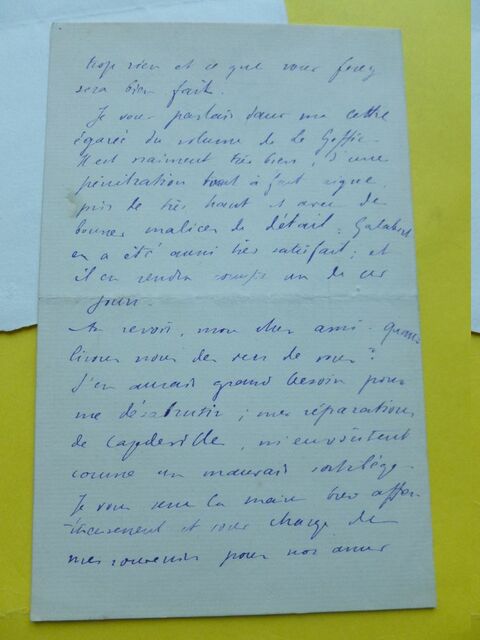 trop rien et ce que vous ferez
sera bien fait.
Je vous parlais dans ma lettre
égarée du volume de Le Goffic.
Il est vraiment très bien, d'une
pénétration tout à fait aigue
pris de très haut et avec de
bonnes malices de détail. Galabert
en a été aussi très satisfait; et
il en rendra compte un de ces
jours.
Au revoir, mon cher ami. Quand
lirons nous des vers de vous?
J'en aurais grand besoin pour
me désabrutir; mes réparations
de Capdeville, m'envoûtent
comme un mauvais sortilège.
Je vous serre la main bien affec-
tueusement et vous charge de
mes souvenirs pour nos amis